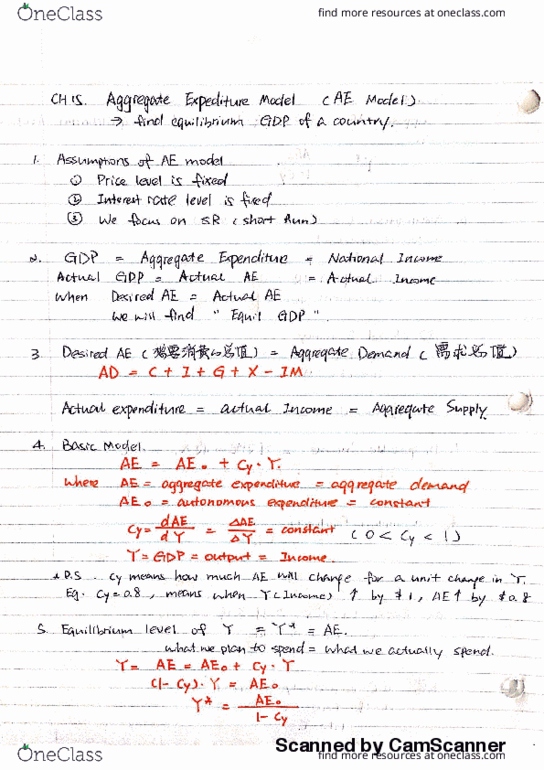 OneClass
find more resources at oneclass.com
CH15. Aggregate Expediture Model (AE Model)
→ find equilibrium GDP of a country.
1. Assumptions of AE model
① Price level is fixed
② Interest rate level is fixed
③ We focus on SR (short Run)
2. GDP = Aggregate Expenditure = National Income
Actual GDP = Actual AE = Actual Income
When Desired AE = Actual AE
We will find "Equil GDP".
3. Desired AE (想要消费的总值) = Aggregate Demand (需求总值)
AD = C + I + G + X - IM
Actual expenditure = actual Income = Aggregate Supply.
4. Basic Model.
AE = AE₀ + Cy · Y.
Where AE = aggregate expenditure = aggregate demand
AE₀ = autonomous expenditure = constant
Cy = dAE/dY = ΔAE/ΔY = constant (0 < Cy < 1)
Y = GDP = output = Income.
* P.S. Cy means how much AE will change for a unit change in Y.
Eg. Cy = 0.8, means when Y (Income) ↑ by $1, AE ↑ by $0.8
5. Equilibrium level of Y = Y* = AE.
what we plan to spend = what we actually spend.
Y = AE = AE₀ + Cy · Y
(1 - Cy) · Y = AE₀
Y* = AE₀/1 - Cy
Scanned by CamScanner
OneClass
find more resources at oneclass.com